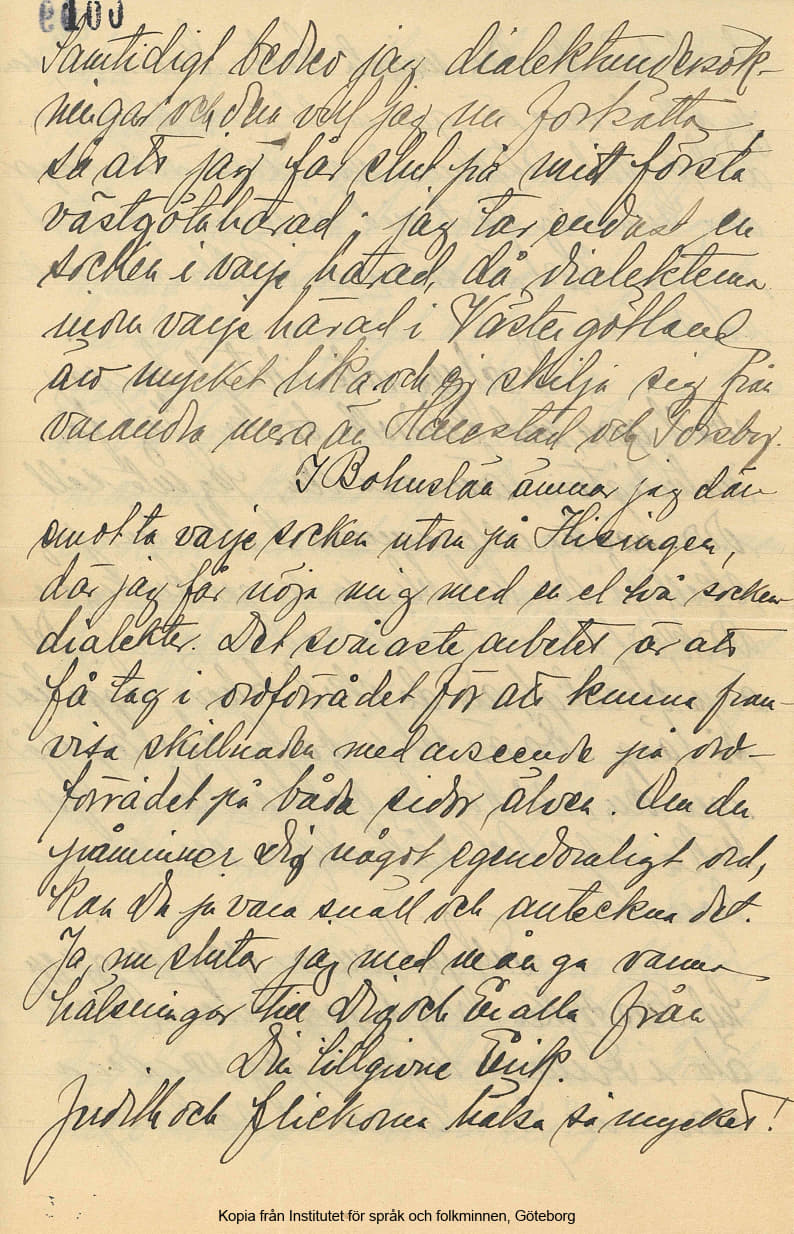 Samtidigt bedrev jag dialektundersök-
ningar och dem vill jag nu fortsätta
så att jag får slut på mitt första
västgötahärad; jag tar endast en
socken i varje härad, då dialekterna
inom varje härad i Västergötland
äro mycket lika och ej skilja sig från
varandra mera än Hallestad och Torsbo.
I Bohuslän ämnar jag där
emot ta varje socken utom på Hisingen,
där jag får nöja mig med en el två socken
dialekter. Det svåraste arbetet är att
få tag i ordförrådet för att kunna fram-
visa skillnaden med avseende på ord-
förrådet på båda sidor älven. Om du
påminner Dig något egendomligt ord,
kan Du ju vara snäll och anteckna det.
Ja, nu slutar jag med många varma
hälsningar till Dig och Er alla från
Din tillgivne Erik.
Judith och flickorna hälsa så mycket!
Kopia från Institutet för språk och folkminnen, Göteborg